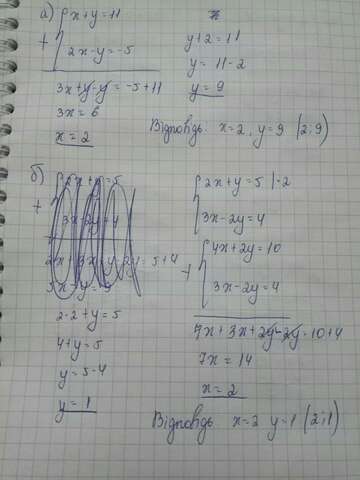 а) { x+y=11
+ { 2x-y=-5
3x+y-y=-5+11
3x=6
x=2
y+2=11
y=11-2
y=9
Відповідь: x=2, y=9 (2;9)
б)
2·2+y=5
4+y=5
y=5-4
y=1
{ 2x+y=5 |·2
{ 3x-2y=4
+ { 4x+2y=10
{ 3x-2y=4
7x+3x+2y-2y=10+4
7x=14
x=2
Відповідь x=2 y=1 (2;1)